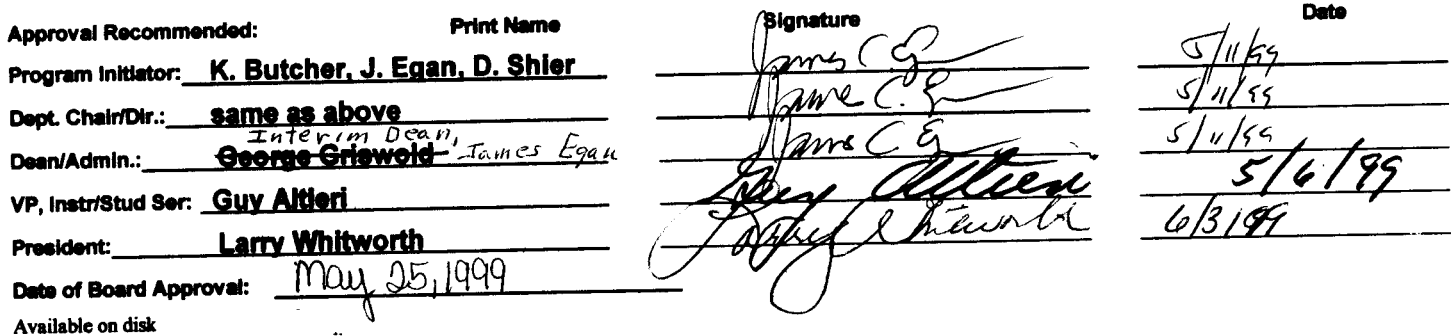 Approval Recommended: Print Name Signature Date
Program Initiator: K. Butcher, J. Egan, D. Shier James C. Eg 5/11/99
Dept. Chair/Dir.: same as above James C. E 5/11/99
Interim Dean,
Dean/Admin.: George Griswold James Egan James C Eg 5/11/99
VP, Instr/Stud Ser: Guy Altieri Guy Altieri 5/6/99
President: Larry Whitworth Larry Whitworth 6/3/99
Date of Board Approval: May 25, 1999
Available on disk